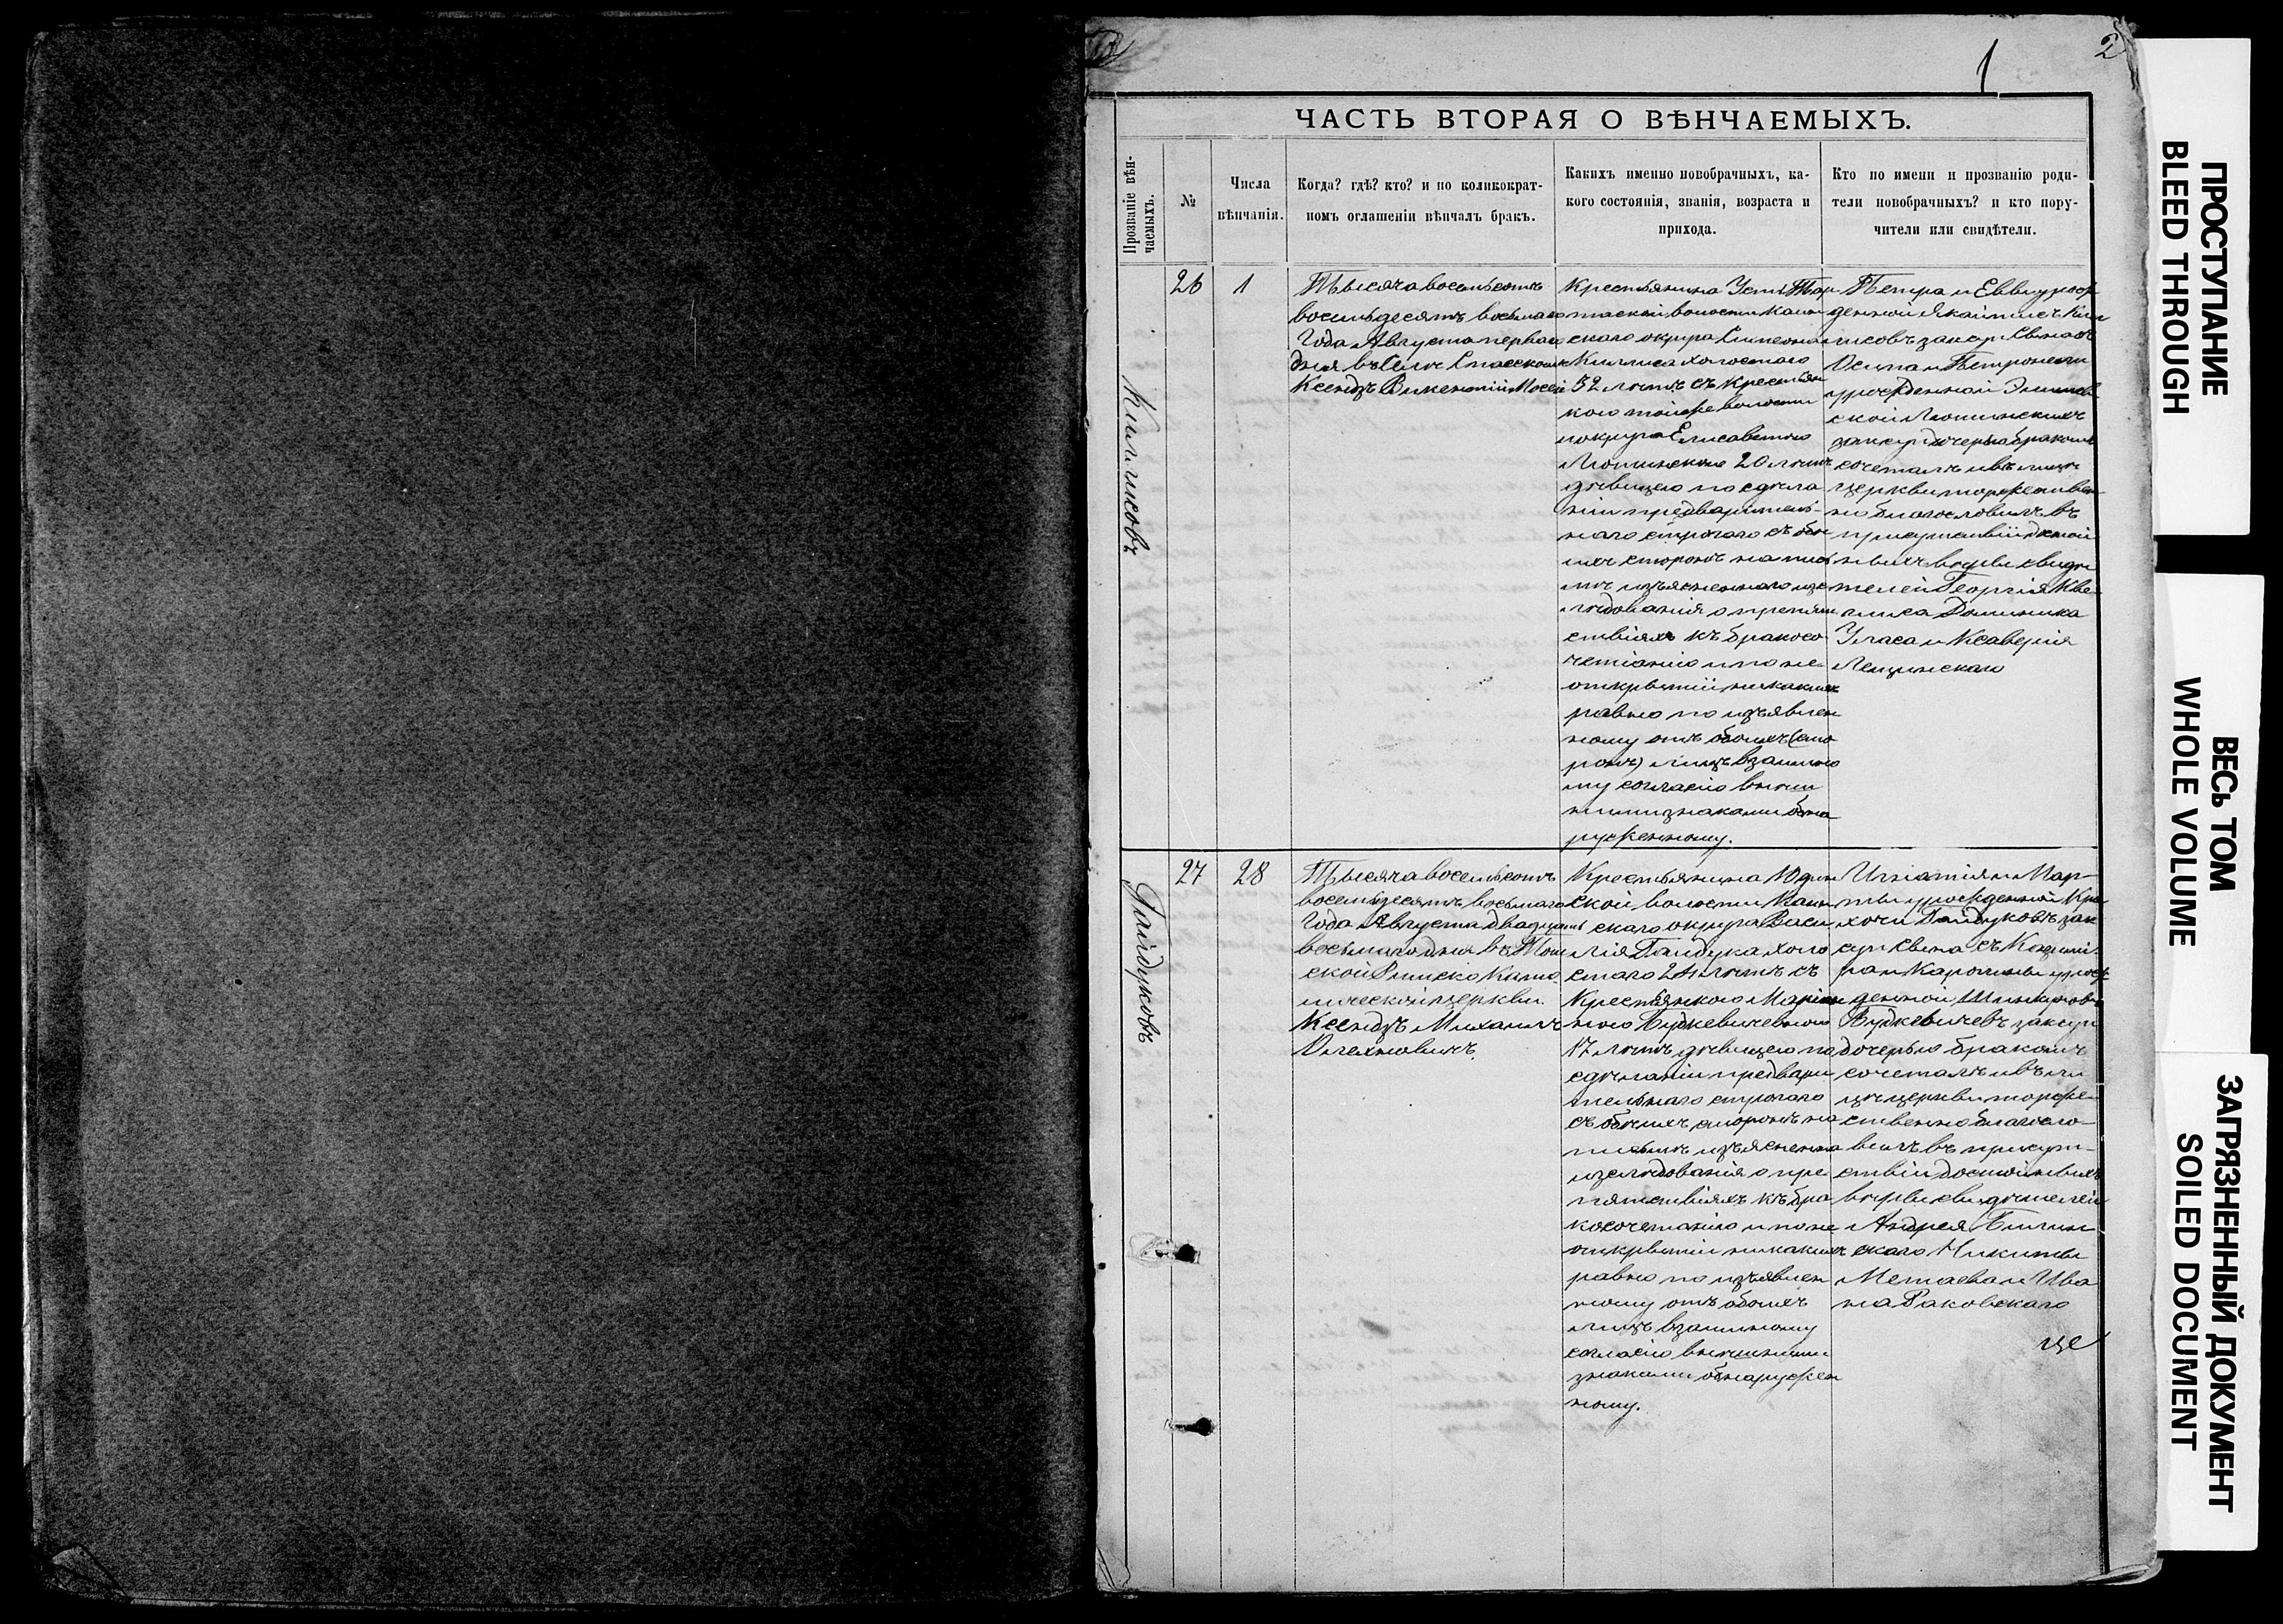 2
1
ЧАСТЬ ВТОРАЯ О ВѢНЧАЕМЫХЪ.
Прозваніе вѣн-
чаемыхъ.
№
Числа
вѣнчанія.
Когда? гдѣ? кто? и по коликократ-
номъ оглашеніи вѣнчалъ бракъ.
Какихъ именно новобрачныхъ, ка-
кого состоянія, званія, возраста и
прихода.
Кто по имени и прозванію роди-
тели новобрачныхъ? и кто пору-
чители или свидѣтели.
26
1
Тысяча восемьсотъ
восемьдесятъ восьмаго
Года Августа перваго
дня въ Селѣ Спасскомъ
Ксендзъ Викентій
Крестьянина Усть Тар
таской волости Каин
скаго округа
холостаго
52 лѣтъ съ Крестьян
кою тойже волости
и округа Елисаветою
20 лѣтъ
дѣвицею по сдѣла
ніи предваритель-
наго строгаго съ обѣ
ихъ сторонъ на пись
мѣ изъясненнаго изс
лѣдованія о препят
ствіяхъ къ бракосо
четанію и по не
открытіи никакихъ
равно по изъявлен
ному отъ обоихъ (сто
ронъ) лицъ взаимно
му согласію внѣш
ними знаками обна
руженному.
Петра и Еввы урож
денной
закон
Осипа и Петронели
урожденной
ской
зак супр дочерью бракомъ
сочеталъ и въ лицѣ
церкви торжествен
но благословилъ въ
присутствіи достой
ныхъ вѣры свидѣ
телей Георгія Кве
Доминика
и Ксаверія
Лещинскаго
27
28
Гайдуковъ
Тысяча восемьсотъ
восемьдесятъ восьмаго
Года Августа двадцать
восьмаго дня въ Том
ской Римско Като
лической церкви
Ксендзъ Михаилъ
Олехновичъ
Крестьянина Юдин
ской волости Каин
скаго округа Васи
лія Гайдука холо
стаго 24 лѣтъ съ
Крестьянкою Маріан
ною Будкевичевною
17 лѣтъ дѣвицею по
сдѣланіи предвари
тельнаго строгаго
съ обѣихъ сторонъ на
письмѣ изъясненна
изслѣдованія о пре
пятствіяхъ къ бра
косочетанію и по не
открытіи никакихъ
равно по изъявлен
ному отъ обоихъ
лицъ взаимному
согласію внѣшними
знаками обнаружен
ному.
Игнатія и Мар-
ты урожденной
Гайдуковъ зак
супр сына съ Казимі-
ра и Каролины урож
денной
Будкевичевъ зак супр
дочерью бракомъ
сочеталъ и въ ли
цѣ церкви торже-
ственно благосло-
вилъ въ присут-
ствіи достойныхъ
вѣры свидѣтелей
Андрея
скаго Никиты
и Ива
на Раковскаго
ПРОСТУПАНИЕ
BLEED THROUGH
ВЕСЬ ТОМ
WHOLE VOLUME
ЗАГРЯЗНЕННЫЙ ДОКУМЕНТ
SOILED DOCUMENT